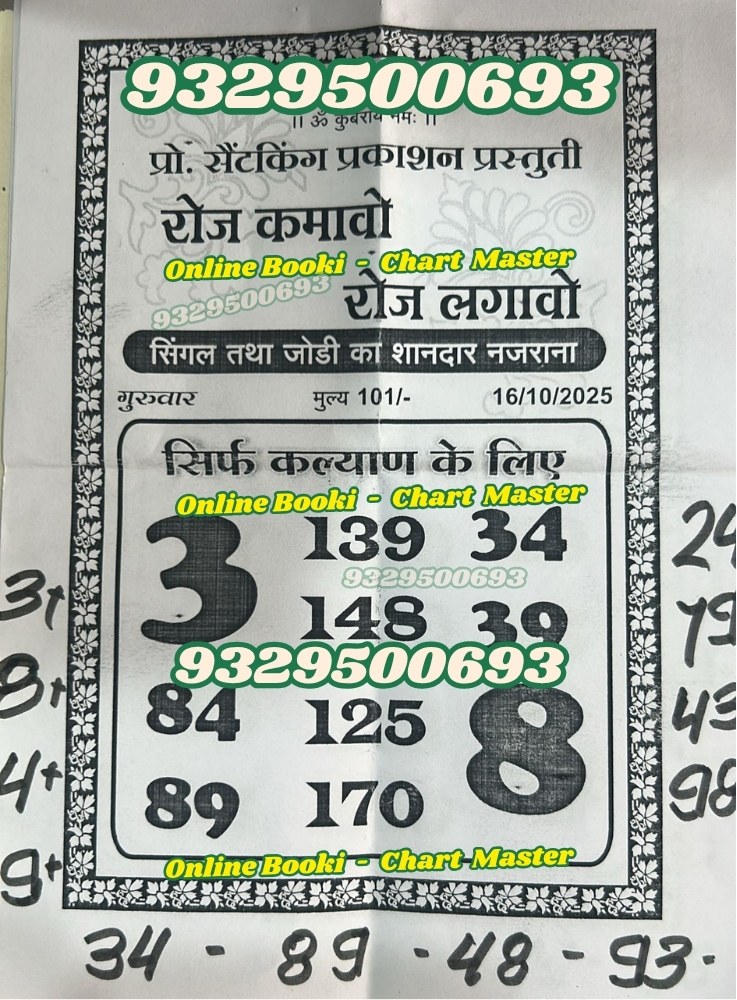 9329500693
।। ॐ कुबेराय नमः ।।
प्रो. सैंटकिंग प्रकाशन प्रस्तुती
रोज कमावो
Online Booki - Chart Master
9329500693
रोज लगावो
सिंगल तथा जोडी का शानदार नजराना
गुरुवार मुल्य 101/- 16/10/2025
सिर्फ कल्याण के लिए
Online Booki - Chart Master
3 139 34
9329500693
148 39
9329500693
84 125 8
89 170
Online Booki - Chart Master
3+
8+
4+
9+
24
79
43
98
34 - 89 - 48 - 93.